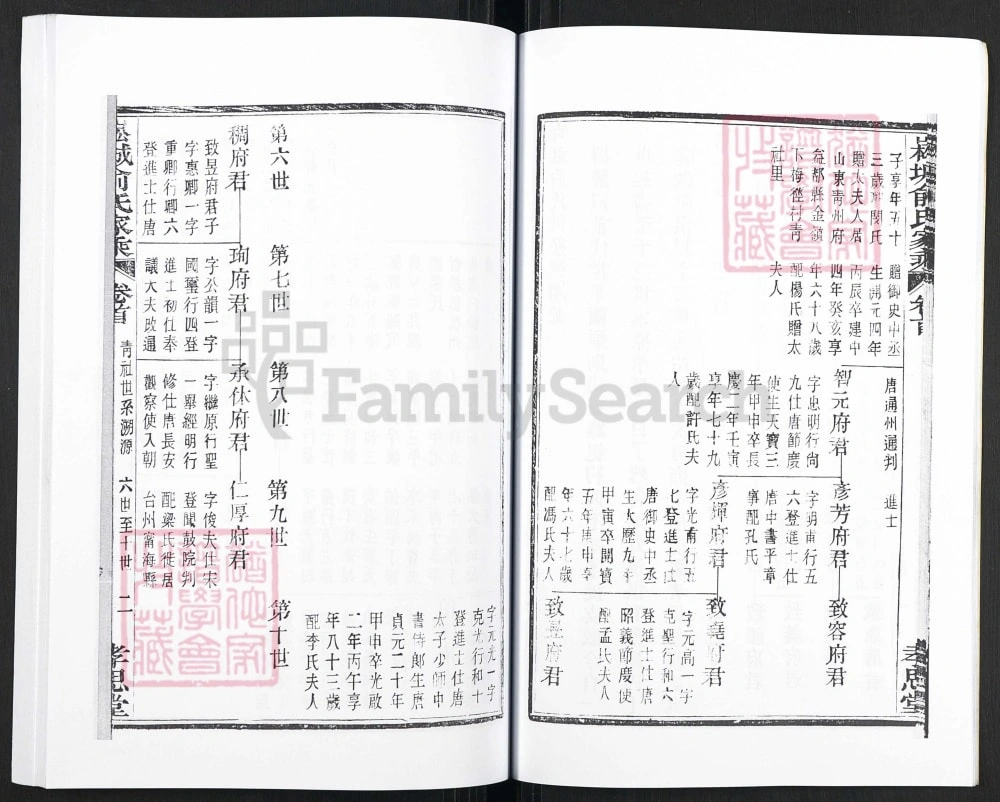 俞氏家乘
卷首
子享年五十
三歲
贈太夫人居
山東靑州府
益都縣金嶺
社里
贈御史中丞
生開元四年
丙辰卒建中
四年癸亥享
年六十八歲
配楊氏贈太
夫人
唐通州通判
進士
智元府君
字忠明行尙
九仕唐節慶
使生天寶三
年甲申卒長
慶二年壬寅
享年七十九
歲配許氏夫
人
彥芳府君
字明甫行五
六登進士仕
唐中書平章
事配孔氏
彥輝府君
字光甫行五
七登進士仕
唐御史中丞
生大歷九年
甲寅卒開寶
五年庚申享
年六十七歲
配馮氏夫人
致容府君
致堯府君
字元高一字
克聖行和六
登進士仕唐
昭義節慶使
配孟氏夫人
致昱府君
孝思堂
字元光一字
克光行和十
登進士仕唐
太子少師中
書侍郎生唐
貞元二十年
甲申卒光啟
二年丙午享
年八十三歲
配李氏夫人
第六世
第七世
第八世
第九世
第十世
稠府君
致昱府君子
字惠卿一字
重卿行卿六
登進士仕唐
珣府君
字公韻一字
國璽行四登
進士初仕奉
議大夫政通
承休府君
字繼原行聖
一舉經明行
修仕唐長安
觀察使入朝
仁厚府君
字俊夫仕宋
登聞鼓院判
配梁氏徙居
台州甯海縣
俞氏家乘
卷首
靑社世系溯源
六世至十世
二
孝思堂
FamilySearch